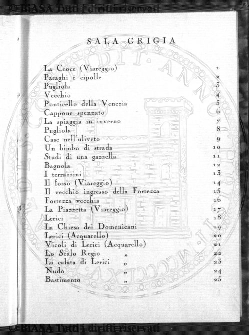 SALA GRIGIA
La Croce (Viareggio) 1
Funghi e cipolle 2
Pugliola 3
Vecchio 4
Ponticello della Venezia 5
Cappone spennato 6
La spiaggia in inverno 7
Pugliola 8
Case nell'oliveto 9
Un bimbo di strada 10
Studi di una gazzella 11
Bagnola 12
I terrazzini 13
Il fosso (Viareggio) 14
Il vecchio ingresso della Fortezza 15
Fortezza vecchia 16
La Piazzetta (Viareggio) 17
Lerici 18
La Chiesa dei Domenicani 19
Lerici (Acquarello) 20
Vicoli di Lerici (Acquarello) 21
Lo Scalo Regio " 22
La calata di Lerici " 23
Nudo " 24
Bastimento " 25